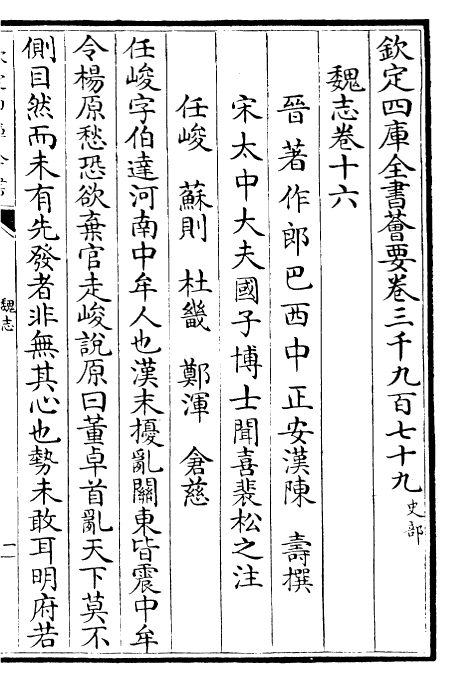 欽定四庫全書薈要卷三千九百七十九 史部
魏志卷十六
晉著作郎巴西中正安漢陳 壽撰
宋太中大夫國子博士聞喜裴松之注
任峻 蘇則 杜畿 鄭渾 倉慈
任峻字伯達河南中牟人也漢末擾亂關東皆震中牟
令楊原愁恐欲棄官走峻說原曰董卓首亂天下莫不
側目然而未有先發者非無其心也勢未敢耳明府若
魏志